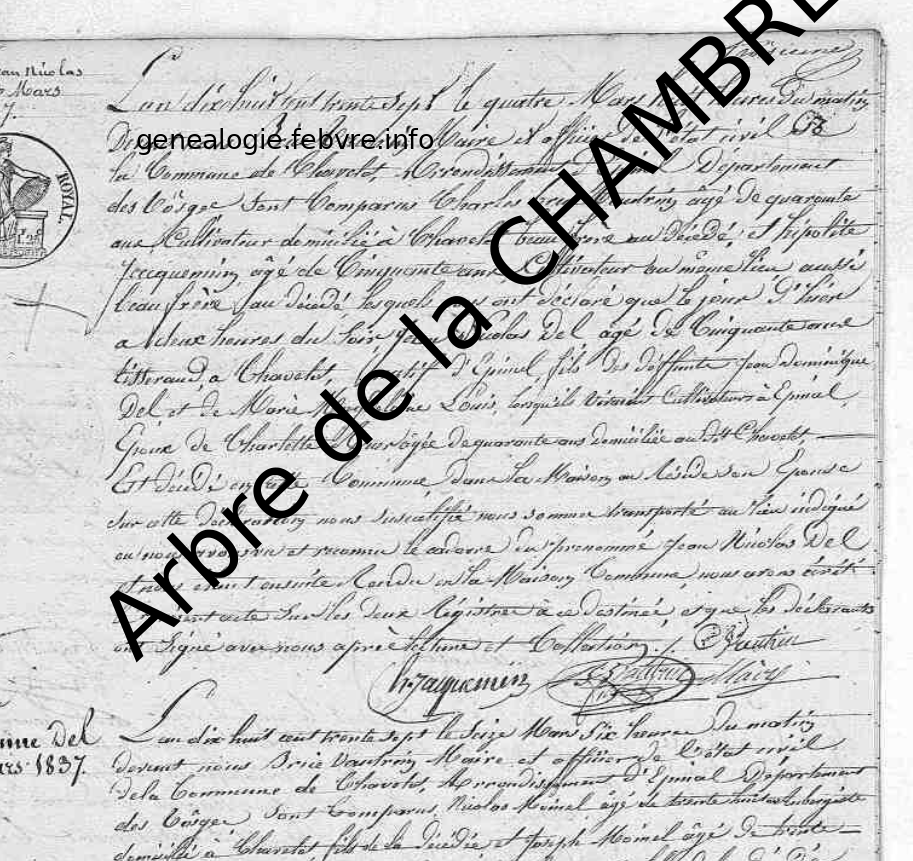 an Nicolas
Mars
7.
ROYAL.
genealogie.febvre.info
Arbre de la CHAMBRE
L'an dix huit cent trente sept le quatre Mars huit heures du matin
Maire et officier De l'état civil De
la Commune de Chavelot, Arrondissement Département
des Vôsges sont Comparus Charles Vautrin âgé De quarante
ans, Cultivateur domicilié à Chavelot beau frere au décédé, et hipolite
Jacquemin, âgé de Cinquante ans, Cultivateur au même lieu aussi
beau frère au décédé lesquels nous ont déclaré que le jour D'hier
a deux heures du soir Jean Nicolas Del agé de Cinquante onze
tisserand, a Chavelot natif d'Epinal, fils Des deffunts Jean Dominique
Del, et de Marie Louis, lorsqu'ils vivaient Cultivateurs à Epinal,
Epoux de Charlotte de quarante ans domiciliée au dit Chavelot,
Est décédé en cette Commune, dans la Maison ou Réside son Epouse
sur cette declaration nous susqualifié nous sommes transporté au lieu indiqué
ou nous avons vu et reconnu le cadavre du prenommé Jean Nicolas Del
et nous étant ensuite Rendu en la Maison Commune, nous avons
acte sur les deux Régistres à ce destinés, et que les déclarants
ont Signé avec nous après lecture et Collection /. Vautrin
h. Jacquemin Vautrin Maire
nne Del
ars 1837.
L'an dix huit cent trente sept le Seize Mars Six heures Du matin
devant nous Brice Vautrin Maire et officier de l'état civil
de la Commune de Chavelot, Arrondissement D'Epinal Département
des Vôsges sont Comparus, Nicolas Moinel âgé de trente huit ans
domicilié à Chavelot, fils de la Décédée, et Joseph Moinel âgé de trente